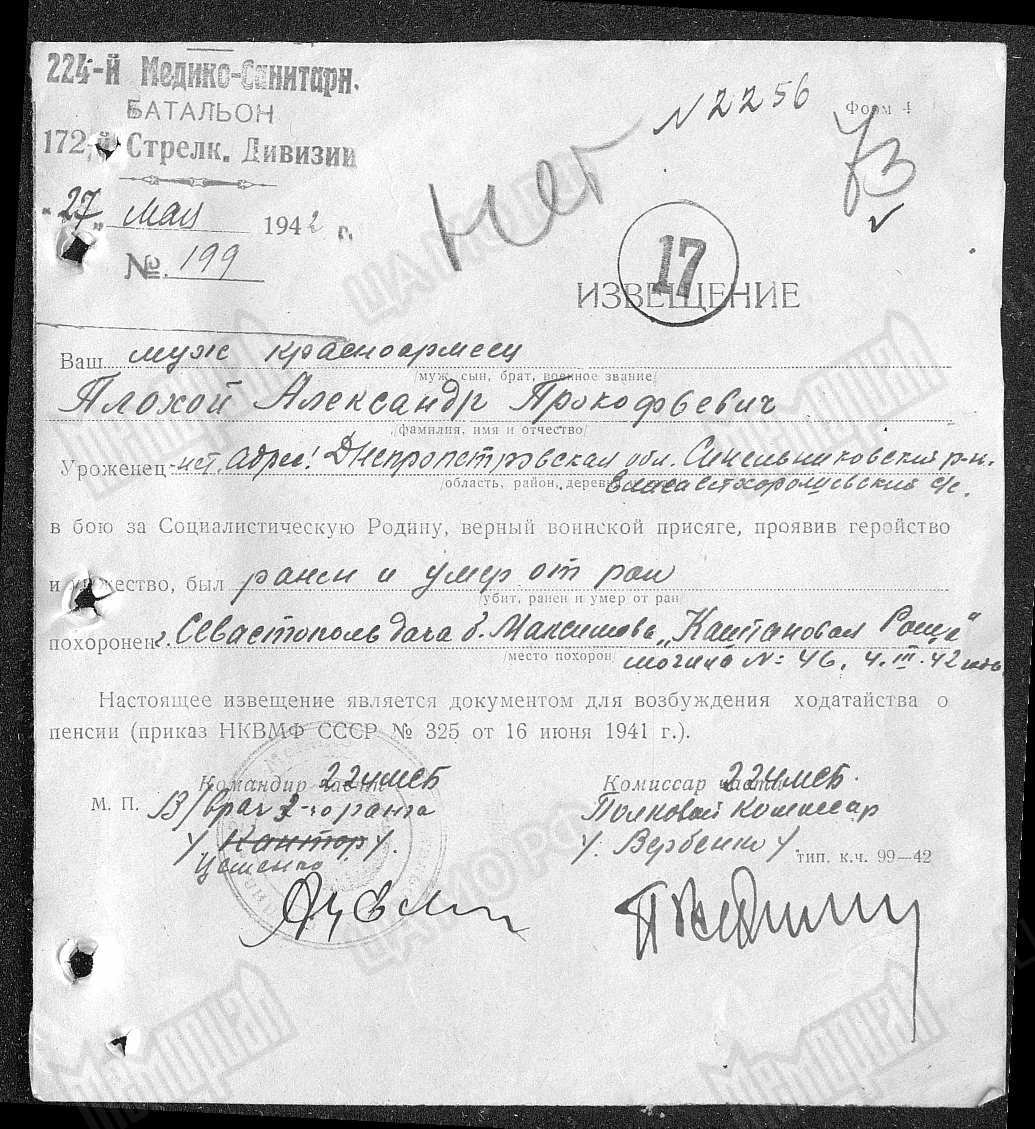 224-й Медико-Санитарн.
БАТАЛЬОН
172-й Стрелк. Дивизии
"27" мая 1942 г.
№ 199
N 2256
Форм 4
73
Нет
17
ИЗВЕЩЕНИЕ
Ваш муж красноармеец
/муж, сын, брат, военное звание/
Плохой Александр Прокофьевич
/фамилия, имя и отчество/
Уроженец адрес: Днепропетровская обл. Синельниковский р-н.
/область, район, дерев
Елисаветхорошевский с/с.
в бою за Социалистическую Родину, верный воинской присяге, проявив геройство
и мужество, был ранен и умер от ран
/убит, ранен и умер от ран/
похоронен г. Севастополь дача б. Максимова "Каштановая Роща"
/место похорон
могила N: 46. 4.III.42
Настоящее извещение является документом для возбуждения ходатайства о
пенсии (приказ НКВМФ СССР № 325 от 16 июня 1941 г.).
Командир части 224 МСБ
М. П. В/врач 2-го ранга
/Кантор/.
Цвленко
Комиссар части 224 МСБ.
Полковой Комиссар
/. Вербенко /.
тип. к.ч. 99—42
Мемориал
ЦАМО РФ